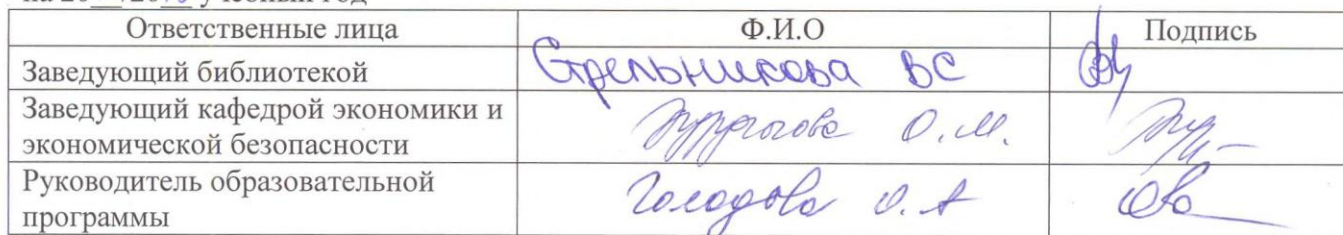 учебный год
Ответственные лица Ф.И.О Подпись
Заведующий библиотекой Стрельникова ВС
Заведующий кафедрой экономики и
экономической безопасности О.М.
Руководитель образовательной
программы Голодова О.А